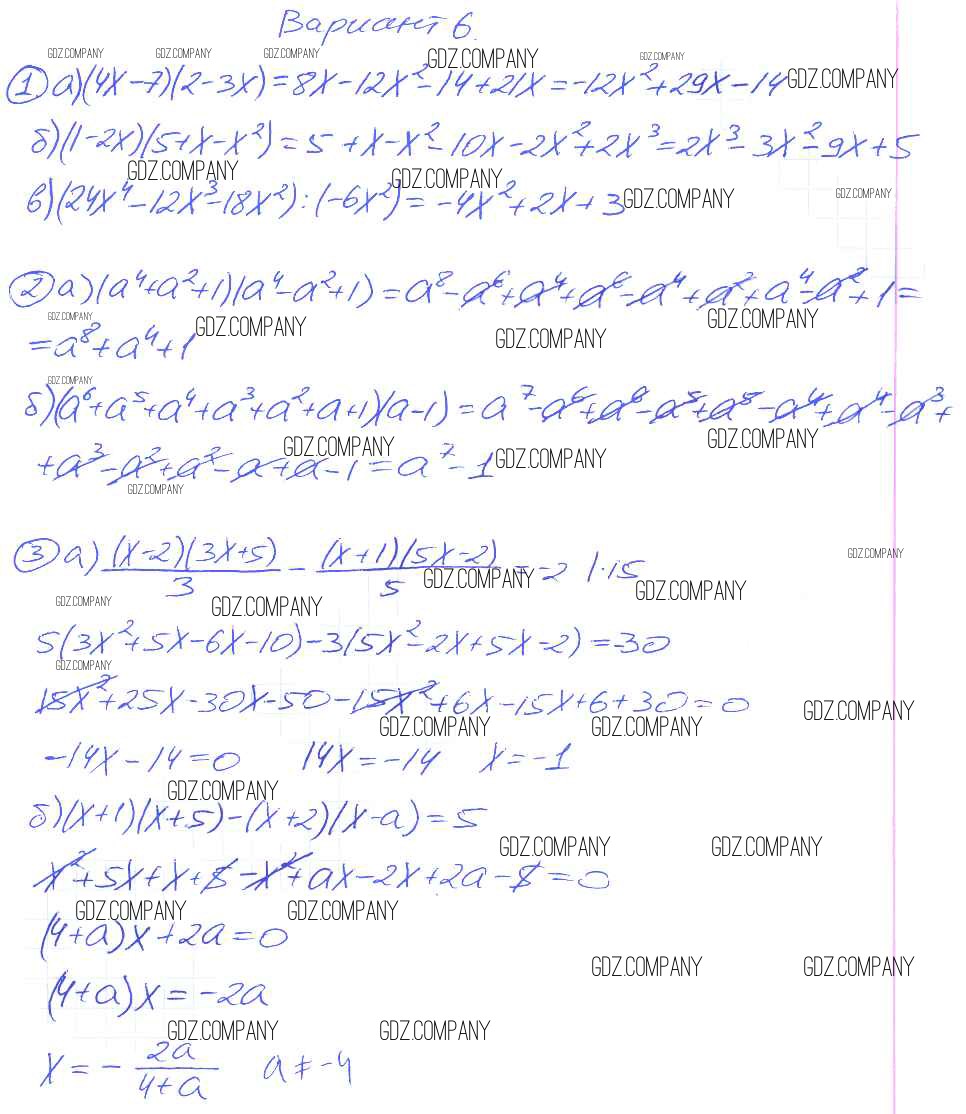 Вариант 6.
GDZ.COMPANY GDZ.COMPANY GDZ.COMPANY GDZ.COMPANY GDZ.COMPANY
① а) (4x-7)(2-3x)=8x-12x²-14+21x=-12x²+29x-14 GDZ.COMPANY
б) (1-2x)(5+x-x²)=5+x-x²-10x-2x²+2x³=2x³-3x²-9x+5
GDZ.COMPANY GDZ.COMPANY
в) (24x⁴-12x³-18x²):(-6x²)=-4x²+2x+3 GDZ.COMPANY GDZ.COMPANY
② а) (a⁴+a²+1)(a⁴-a²+1)=a⁸-a⁶+a⁴+a⁶-a⁴+a²+a⁴-a²+1=
GDZ.COMPANY GDZ.COMPANY GDZ.COMPANY GDZ.COMPANY
=a⁸+a⁴+1
GDZ.COMPANY
б) (a⁶+a⁵+a⁴+a³+a²+a+1)(a-1)=a⁷-a⁶+a⁶-a⁵+a⁵-a⁴+a⁴-a³+
GDZ.COMPANY GDZ.COMPANY
+a³-a²+a²-a+a-1=a⁷-1 GDZ.COMPANY
GDZ.COMPANY
③ а) (x-2)(3x+5)/3 - (x+1)(5x-2)/5 = -2 |·15
GDZ.COMPANY GDZ.COMPANY GDZ.COMPANY
GDZ.COMPANY GDZ.COMPANY
5(3x²+5x-6x-10)-3(5x²-2x+5x-2)=-30
GDZ.COMPANY
15x²+25x-30x-50-15x²+6x-15x+6+30=0 GDZ.COMPANY
GDZ.COMPANY GDZ.COMPANY
-14x-14=0 14x=-14 x=-1
GDZ.COMPANY
б) (x+1)(x+5)-(x+2)(x-a)=5
GDZ.COMPANY GDZ.COMPANY
x²+5x+x+5-x²+ax-2x+2a-5=0
GDZ.COMPANY GDZ.COMPANY
(4+a)x+2a=0
GDZ.COMPANY GDZ.COMPANY
(4+a)x=-2a
GDZ.COMPANY GDZ.COMPANY
x=-2a/(4+a) a≠-4